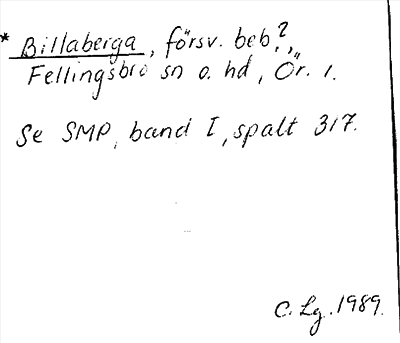 * Billaberga, försv. beb.?,
Fellingsbro sn o. hd, Ör. l.
Se SMP, band I, spalt 317.
C. Lg. 1989.